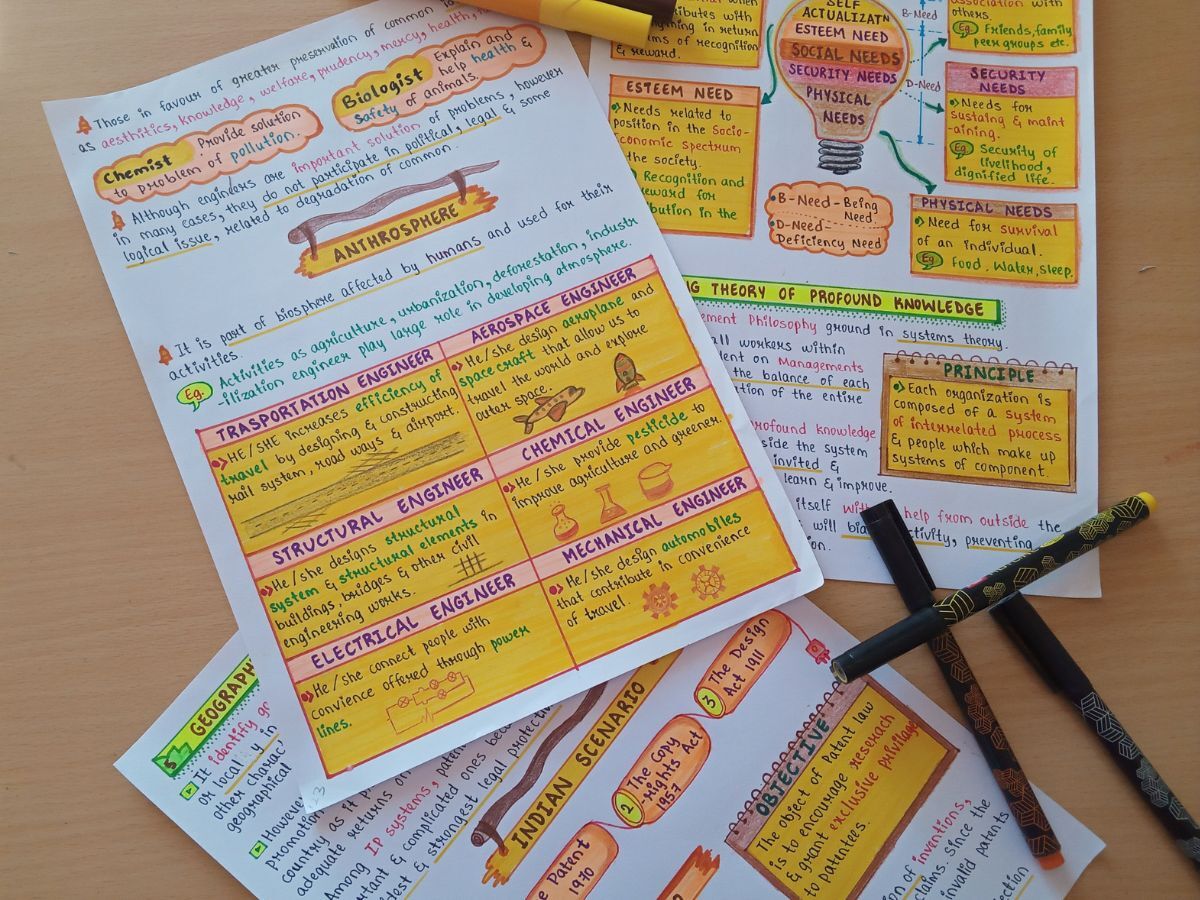 Those in favour of greater preservation of common
as aesthitics, knowledge, welfare, prudency, mercy, health,
Chemist Provide solution
to problem of pollution.
Biologist Explain and
help health &
safety of animals.
Although engineers are important solution of problems, however
in many cases, they do not participate in political, legal & some
logical issue, related to degradation of common.
ANTHROSPHERE
It is part of biosphere affected by humans and used for their
activities.
Eg. Activities as agriculture, urbanization, deforestation, industr
-ilization engineer play large role in developing atmosphere.
TRASPORTATION ENGINEER
He/SHE increases efficiency of
travel by designing & constructing
rail system, road ways & airport.
AEROSPACE ENGINEER
He/she design aeroplane and
space craft that allow us to
travel the world and explore
outer space.
STRUCTURAL ENGINEER
He/she designs structural
system & structural elements in
buildings, bridges & other civil
engineering works.
CHEMICAL ENGINEER
He/she provide pesticide to
improve agriculture and greener.
ELECTRICAL ENGINEER
He/she connect people with
convience offered through power
lines.
MECHANICAL ENGINEER
He/she design automobiles
that contribute in convenience
of travel.
tributes with
in return
of recognition
& reward.
ESTEEM NEED
Needs related to
position in the Socio-
Economic spectrum
the society.
Recognition and
reward for
in the
SELF
ACTUALIZATN
ESTEEM NEED
SOCIAL NEEDS
SECURITY NEEDS
PHYSICAL
NEEDS
B-Need
D-Need
association with
others.
Eg Friends, family,
peer groups etc.
SECURITY
NEEDS
Needs for
sustaing & maint
-aining.
Eg Security of
livelihood,
dignified life.
B-Need-Being
Need
D-Need-
Deficiency Need
PHYSICAL NEEDS
Need for survival
of an individual.
Eg Food, Water, Sleep.
NG THEORY OF PROFOUND KNOWLEDGE
ement Philosophy ground in systems theory.
all workers within
dent on Managements
the balance of each
ation of the entire
PRINCIPLE
Each organization is
composed of a system
of interrelated process
& people which make up
systems of component.
rofound knowledge
side the system
invited &
learn & improve.
itself with help from outside the
will preventing
5 GEOGRAPH
It identify
or local
other charac
geographical
However
promotion
country as it
adequate returns
Among IP systems, paten
rtant & complicated ones
dest & strongest legal protectiv
INDIAN SCENARIO
3 The Design
Act 1911
2 The Copy
-rights Act
1957
Patent
1970
OBJECTIVE
The object of Patent law
is to encourage reserach
& grant exclusive privilage
to patentees.
of inventions,
claims. Since the
invalid patents